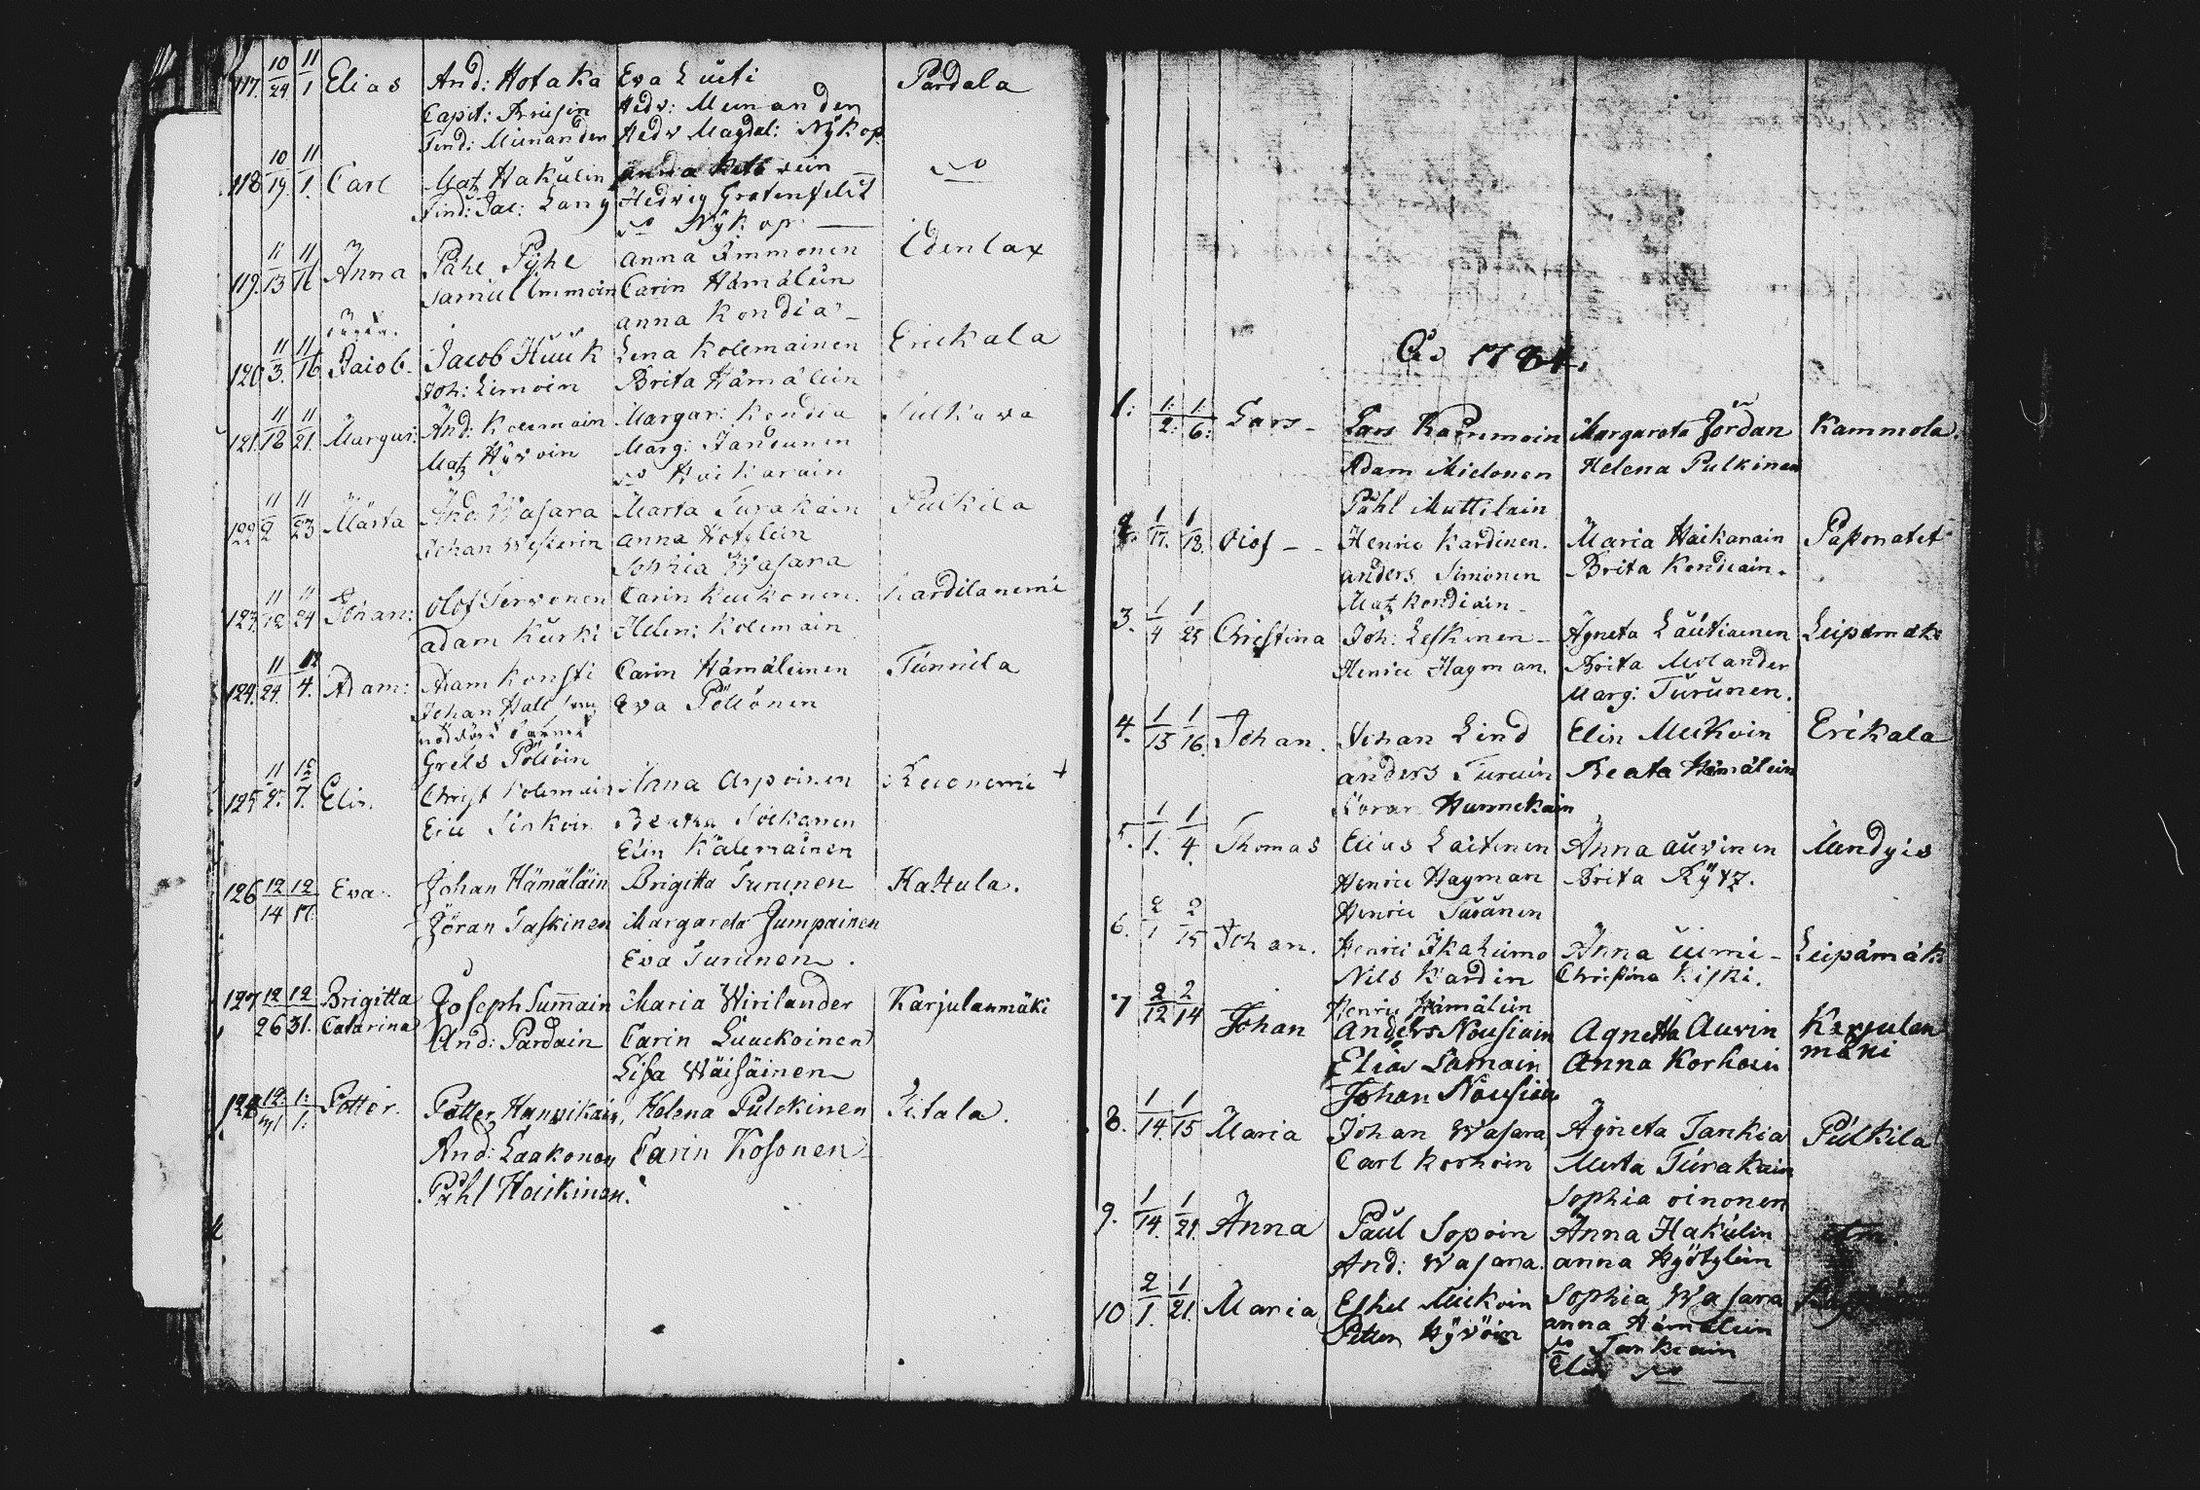 117. 10/24 11/1 Elias And: Hotaka Eva Lusti Pardala
Capit: Hedv: Munander
Fend: Munander Hedv Magdal: Nykop.
118 10/19. 11/1. Carl Matz Hakulin
Find: Jac: Lang Hedvig Grotenfelt
Nykop
119. 11/13 11/16 Anna Påhl Pyhe Anna Immonen Odenlax
Samuel Immoin Carin Hämäläin
anna Kondia
120 11/3. 11/16 Jacob Jacob Huuk Lena Kolemainen Erickala
Joh: Limoin Brita Hämäläin
121. 11/18 11/21. Margar: And: Kolemain Margar: Kondia Sulkava
Matz Hyvoin Marg:
Haikarain
122 11/2 11/23 Märta And: Wasara Marta Turakain Pulkila
Johan Weskerin anna Hotylein
Sophia Wasara
123. 11/12 11/24 Johan: Olof Tervonen Carin Kuikonen. Kardilanemi
adam Kurki Helen: Kolemain
124. 11/24. 12/4. Adam: Adam Konsti Carin Hämäleinen Tunnila
Johan Eva Pöllönen
Grels Pöllöin
125 12/7. Elin Christ Kolemain Anna Arpoinen
Eric Sirkoin Beata
Elin Kälemainen
126 12/14 12/17. Eva. Johan Hämäläin Brigitta Turunen Kattula.
Jöran Taskinen Margareta Jumpainen
Eva Turunen.
127 12/26 12/31. Brigitta Joseph Summain Maria Wirilander Karjulanmäki
Catarina And: Pardain Carin Luuckoinen
Lisa Wäisäinen
128 12:/31 1:/1: Petter. Petter Hanpikain, Helena Pulckinen Titala.
And: Laakonen Carin Kosonen
Påhl Haikinen.
Ao 1784.
1: 1:/2: 1:/6: Lars Lars Kammoin Margareta Jordan Kammola.
Adam Mielonen Helena Pulkinen
Påhl Muttilain
2. 1/17. 1/18. Olof Henric Kardinen. Maria Haikarain Paponatet
anders Simonen Brita Kondiain.
Matz Kondiain
3. 1/4 1/25 Christina Joh: Leskinen Agneta Lautiainen Leipamäki
Henric Hagman. Brita Molander
Marg: Turunen.
4. 1/15 1/16. Johan. Johan Lind Elin Miikoin Erikala
anders Turuin Beata Hämäläin
Hunnekain
5. 1/1. 1/4. Thomas Elias Laitinen Anna auvinen Mendyis
Henric Hagman Brita Rytz.
Henric Turunen
6. 2/1 2/15 Johan. Henric Ikaheimo Anna Leipämäki
Nils Kardin Christina Kiski.
Henric Hämäläin
7 2/12 2/14 Johan Anders Nousiain Agnetta Auvin Karjulan
Elias Samain Anna Korhoin mäki
Johan Nousiain
8. 1/14. 1/15 Maria Johan Wasara Agneta Tankia Pulkila
Carl Korhoin Merta Turakain
Sophia oinonen
9. 1/14. 1/21. Anna Paul Sopoin Anna Hakulin
And: Wasara. anna Hyötylein
10 2/1. 1/21. Maria Eskel Miikoin Sophia Wasara
Petter Hyvöin anna Hämäläin
Tankiain
Elin